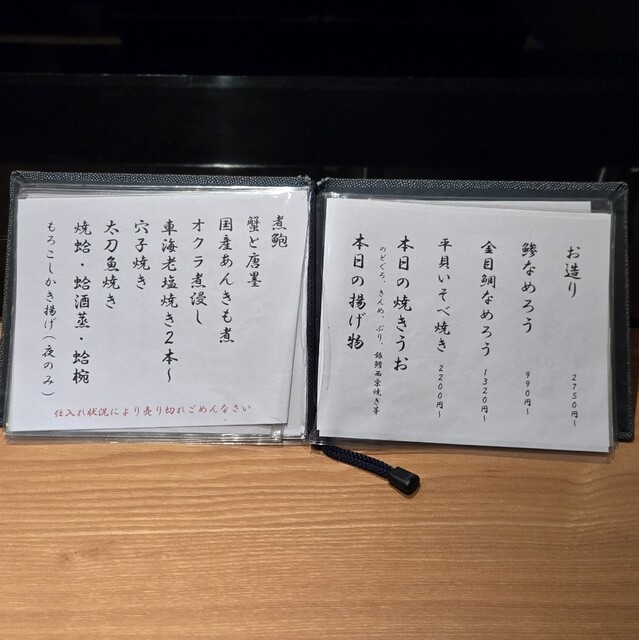 お造り 2750円〜
鯵なめろう 990円〜
金目鯛なめろう 1320円〜
平貝いそべ焼き 2200円〜
本日の焼きうお
のどぐろ、きんめ、ぶり、銀鱈西京焼き等
本日の揚げ物
煮鮑
蟹と唐墨
国産あんきも煮
オクラ煮浸し
車海老塩焼き2本〜
穴子焼き
太刀魚焼き
焼蛤・蛤酒蒸・蛤椀
もろこしかき揚げ(夜のみ)
仕入れ状況により売り切れごめんなさい